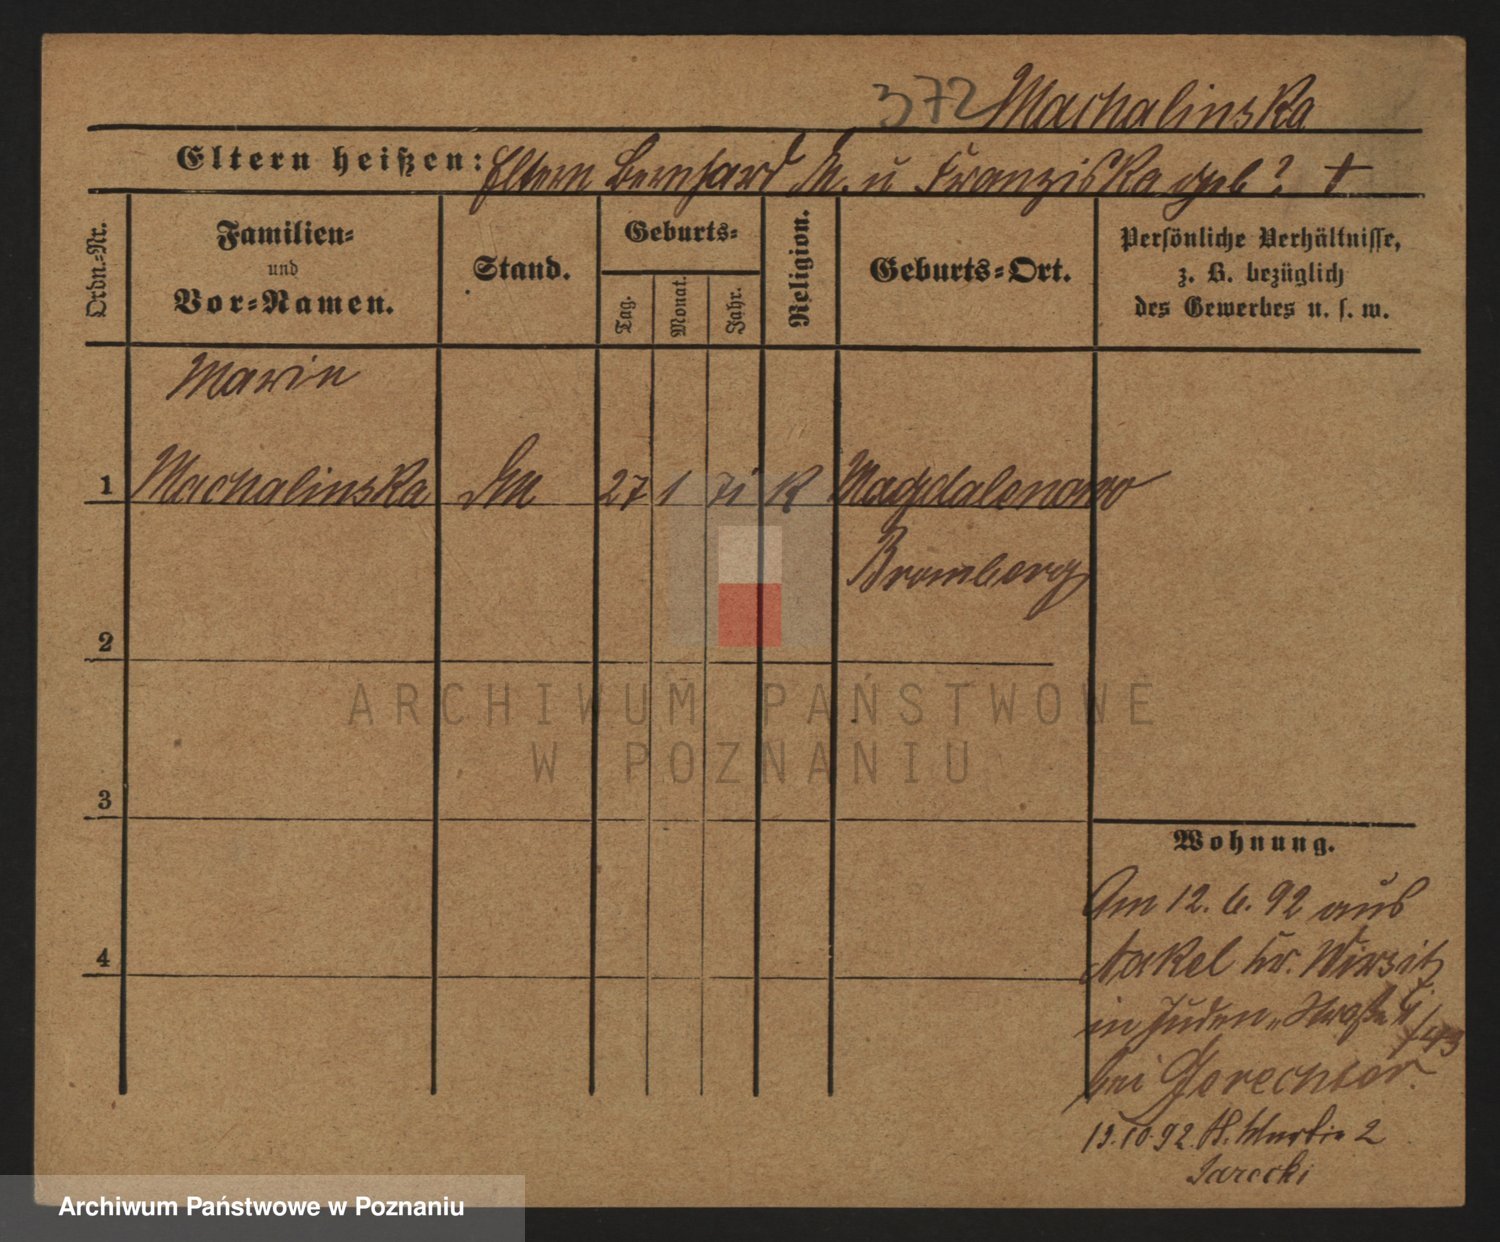 372 Machalinska
Eltern heißen: Eltern Bernhard M. u Franziska geb ? †
Ordn.-Nr.
Familien-
und
Vor-Namen.
Stand.
Geburts-
Tag.
Monat.
Jahr.
Religion.
Geburts-Ort.
Persönliche Verhältnisse,
z. B. bezüglich
des Gewerbes u. s. w.
Marie
1 Machalinska 27 1 71 K Magdalenowo
Bromberg
2
3
4
Wohnung.
Am 12. 6. 92 aus
Nakel Kr. Wirsitz
in Juden-Straße
bei Gerechter.
15.10.92. St. Martin 2
Jarecki
ARCHIWUM PAŃSTWOWE
W POZNANIU
Archiwum Państwowe w Poznaniu